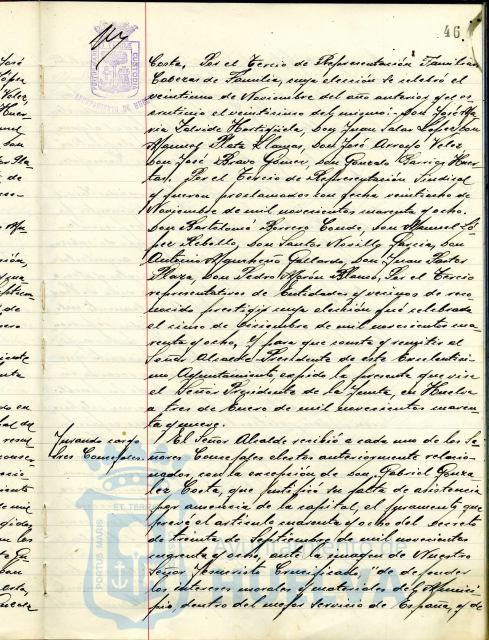 46.
Costa, Por el Tercio de Representación Familiar
Cabezas de Familia, cuya elección se celebró el
veintiuno de Noviembre del año anterior y el es
crutinio el veinticinco del mismo: Don José Ma
ría Don Juan Salas López, Don
Manuel Plata Llamas, Don José Arroyo Velez
Don José Bravo Gómez, Don Gonzalo Huer
tas. Por el Tercio de Representación Sindical
y fueron proclamados con fecha veintiocho de
Noviembre de mil novecientos cuarenta y ocho.
Don Bartolomé Borrero Conde, Don Manuel Ló
pez Rebollo, Don Santos Novillo García, Don
Antonio Gallardo, Don Juan Pastor
Plaza, Don Pedro Morón Blanco, Por el Tercio
representativo de Entidades y vecinos de reco
nocido prestigio cuya elección fué celebrada
el cinco de Diciembre de mil novecientos cua
renta y ocho, Y para que conste y remitir al
Señor Alcalde Presidente de este Excelentísi
mo Ayuntamiento, expido la presente que visa
el Señor Presidente de la Junta, en Huelva
a tres de Enero de mil novecientos cuaren
ta y nueve.
Jurando cargo
los Concejales.
El Señor Alcalde recibió a cada uno de los Se
ñores Concejales electos anteriormente relacio
nados, con la excepción de Don Gabriel Gonzá
lez Costa, que justificó su falta de asistencia
por ausencia de la capital, el juramento que
prevé el artículo cuarenta y ocho del Decreto
de treinta de Septiembre de mil novecientos
cuarenta y ocho, ante la imagen de Nuestro
Señor Jesucristo Crucificado, de defender
los intereses morales y materiales del Munici
pio, dentro del mejor servicio de España, y de
PORTUS MARIS ET TERRAE CUSTODIA
Ayuntamiento de
HUELVA